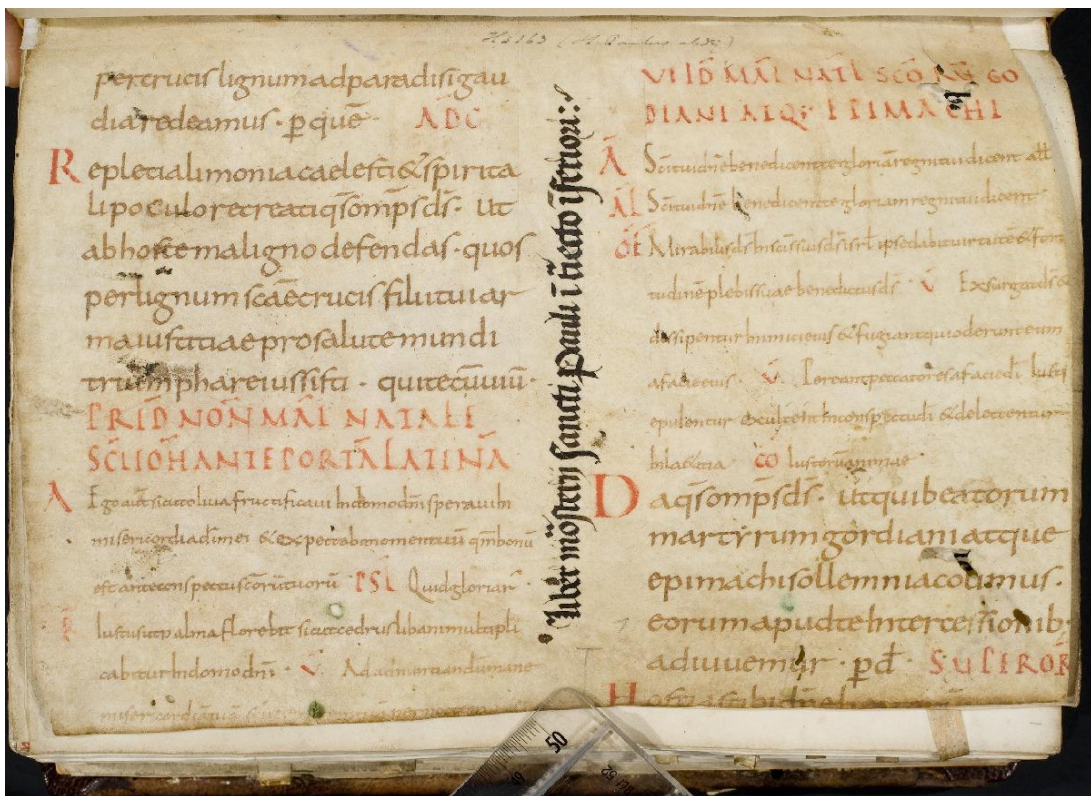 Hs 163
per crucis lignum ad paradisi gau
dia redeamus · p̱ quē · AD C̄
Repleti alimonia caelesti & spirita
li poculo recreati q̄s omp̄s d̄s · Ut
ab hoste maligno defendas · quos
per lignum scāe crucis filii tui ar
ma iustitiae pro salute mundi
triumphare iussisti · qui tecū uiū ·
PRID NON̄ MAI NATALE
SC̄I IOH̄ ANTE PORTĀ LATINĀ
A Ego aūt sicut oliua fructificaui In domo dn̄i speraui In
misericordia dī mei & expectabo nomen tuū qm̄ bonū
est ante conspectu sc̄orū tuorū PSL Quid gloriar
R Iustus ut palma florebit sicut cedrus libani multipli
cabitur In domo dn̄i · V̄ Ad adnuntiandū mane
misericordiā tuā
liber mōsterij sancti pauli ī t̄iecto īferiori :·
VI ID MAI NATL SC̄ORŪ GO
DIANI ATQ; EPIMACHI
A Sc̄i tui dn̄e benedicent te gloriā regni tui dicent all
AL Sc̄i tui dn̄e benedicent te gloriam regni tui dicent
OF Mirabilis d̄s In sc̄is suis d̄s isrl̄ ipse dabit uirtutē & forti
tudinē plebis suae benedictus d̄s · V̄ Exsurgat d̄s &
dissipentur Inimici eius & fugiant qui oderunt eum
a facie eius · V̄ Pereant peccatores a facie dī Iusti
epulentur & exultent In conspectu dī & delectentur
In laetitia CO Iustorū animae
Da q̄s omp̄s d̄s · ut qui beatorum
martyrum gordiani atque
epimachi sollemnia colimus ·
eorum apud te Intercessionib;
adiuuemur · p̱ d̄ · SUPER OB
Hostias tibi dn̄e
50
49
52